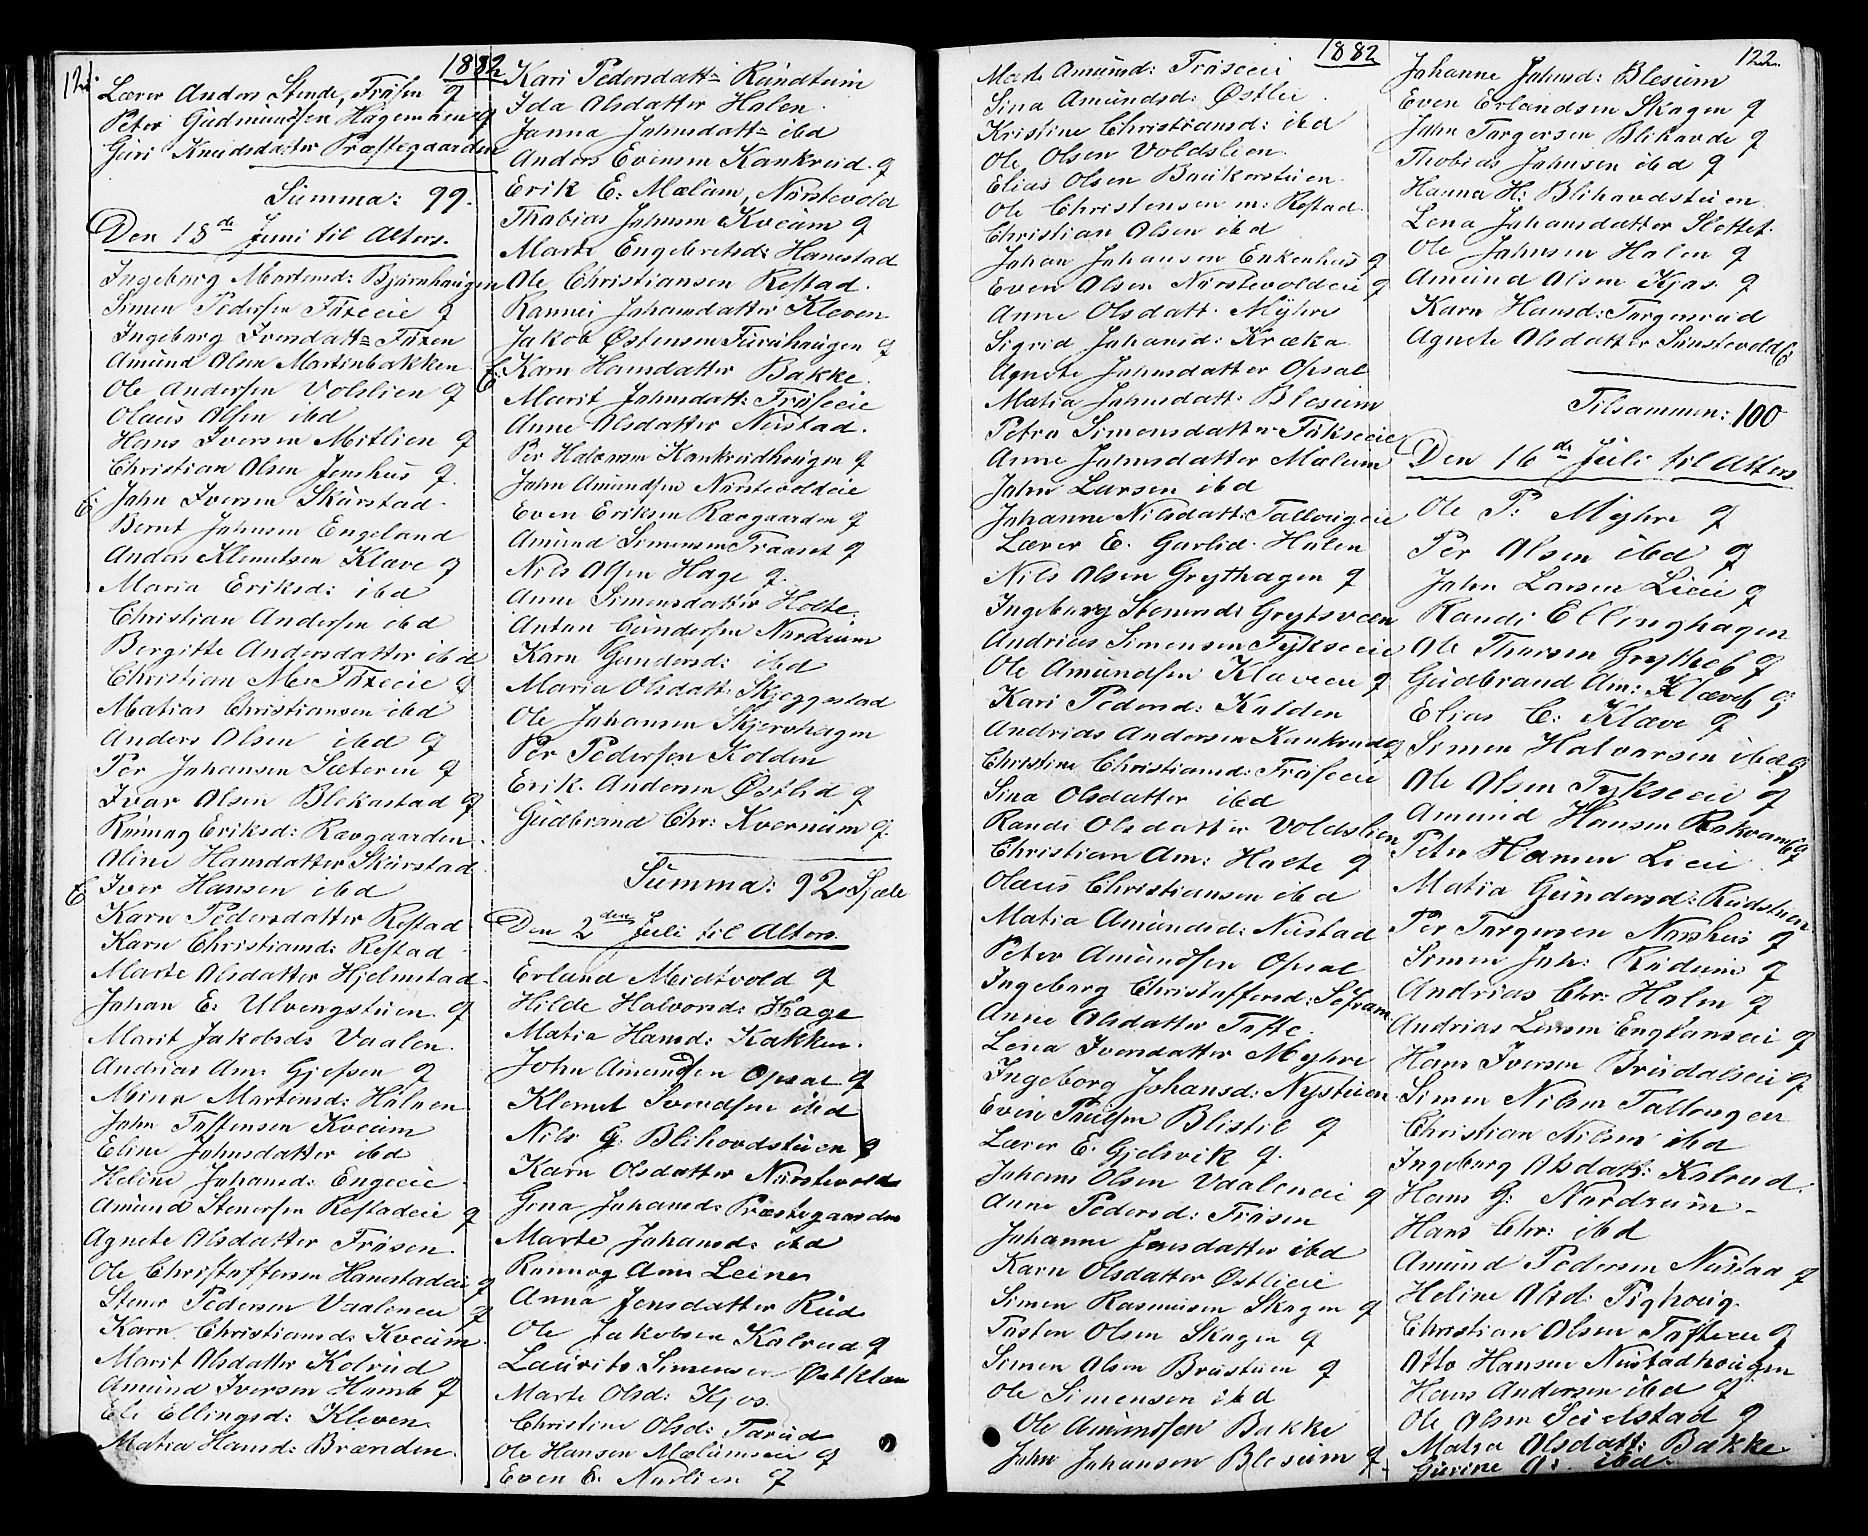 121.
1882
Lærer Anders Stende, Frøsen og
Peter Gudmundsen Hagemoen og
Guri Knudsdatter Præstegaarden
Summa: 99.
Den 18de Juni til Alters.
Ingeborg Martensd: Bjørnhaugen
Simen Pedersen Faxeeie og
Ingeborg Iversdatt= Faxen
Amund Olsen Martinbakken
Ole Andersen Volslien og
Olaus Olsen ibd
Hans Iversen Mitlien og
Christian Olsen Jenshus og
John Iversen Skurstad.
Bernt Johnsen Engeland
Anders Klemetsen Klæve og
Maria Eriksd: ibd
Christian Andersen ibd
Bergitte Andersdatter ibd
Christian M: Faxeeie og
Matias Christiansen ibd
Anders Olsen ibd og
Per Johansen Sæteren og
Ivar Olsen Blekastad og
Rønnog Eriksd: Rævgaarden.
Oline Hansdatter Skurstad
Iver Hansen ibd
Karn Pedersdatter Refstad
Karn Christiansd: Refstad
Marte Olsdatter Hjelmstad.
Johan E: Ulvengstuen og
Marit Jakobsd: Vaalen.
Andrias Am: Gjefsen og
Mina Martensd: Holmen
John Toftensen Kveum
Eline Johnsdatter ibd
Heline Johansd: Engeeie
Amund Stenersen Refstadeie og
Agnete Olsdatter Frøsen
Ole Christoffersen Hanestadeie og
Stener Pedersen Vaaleneie og
Karn Christiansd: Kveum
Marit Olsdatter Kolrud
Amund Iversen Homb og
Eli Ellingsd: Kleven.
Matia Hansd: Brænden.
Kari Pedersdatt= Rundtum
Ida Olsdatter Holen.
Janna Johnsdatt= ibd
Anders Evensen Kankrud. og
Erik E: Mælum, Nørstevold
Thobias Johnsen Kveum og
Marte Engebretsd: Hanestad
Ole Christiansen Refstad.
Rannei Johansdatter Kleven
Jakob Østensen Furuhaugen og
Karn Hansdatter Bakke.
Marit Johnsdatt: Frøseeie
Anne Olsdatter Nustad.
Per Halvorsen Kankrudhougen og
John Amundsen Nørstevoldeie
Even Eriksen Rævgaarden og
Amund Simensen Traaset og
Nils Olsen Hage og
Anne Simensdatter Holte.
Anton Gundersen Nordrum
Karn Gundersd: ibd
Maria Olsdatt: Skjeggestad
Ole Johansen Skjervhagen
Per Pedersen Kolden
Erik Andersen Østlid og
Gudbrand Chr: Kvernum og.
Summa: 92 Sjæle
Den 2den Juli til Alters.
Erland Meidtvold og
Hilde Halvorsd: Hage
Matia Hansd: Kakken.
John Amundsen Opsal og
Klemet Svendsen ibd
Nils G: Blihovdstuen og
Karn Olsdatter Nørstevold
Gina Johansd: Præstegaarden
Marte Johansd: ibd
Rønnog Am: Leine
Anna Jensdatter Rud
Ole Jakobsen Kolrud og
Laurits Simensen Østklæv
Marte Olsd: Kjos.
Christine Olsd: Torud
Ole Hansen Mælumseie og
Even E: Nørlien og
1882
122.
Mart Amund: Frøseeie
Sina Amundsd: Østlie
Kristine Christiansd: ibd
Ole Olsen Voldslien
Elias Olsen Baukerstuen.
Ole Christensen m: Refstad.
Christian Olsen ibd
Johan Johansen Enkenhus og
Even Olsen Nørstevoldeie og
Anne Olsdatt: Myhre
Sigrid Johansd: Kræka
Agnete Johnsdatter Opsal
Matia Johnsdatt: Blesum
Petra Simensdatter Tykseeie
Anne Johnsdatter Mælum
John Larsen ibd
Johanne Nilsdatt: Tallougeie
Lærer E. Garlid. Holen
Nils Olsen Grythagen og
Ingeborg Stenersd: Grytsveen
Andrias Simensen Tykseeie
Ole Amundsen Klæveeie og
Kari Pedersd: Kolden
Andrias Andersen Kankrud og
Christine Christiansd: Frøseeie
Sina Olsdatter ibd
Randi Olsdatter Voldslien
Christian Am: Holte og
Olaus Christiansen ibd
Matia Amundsd: Nustad
Peter Amundsen Opsal
Ingeborg Christoffersd:
Anne Olsdatter Tofte.
Lena Iversdatter Myhre
Ingeborg Johansd: Nystuen
Even Paulsen Blistil og
Lærer E. Gjelsvik og.
Johans Olsen Vaaleneie og
Anne Pedersd: Frøsen
Johanne Jensdatter ibd
Karn Olsdatter Østlieie
Simen Rasmusen Skogen og
Tosten Olsen Skogen og
Simen Olsen Brustuen og
Ole Simensen ibd
Ole Amundsen Bakke
John Johansen Blesum og.
Johanne Johnsd: Blesum
Even Erlandsen Skogen og
John Torgersen Blihovde og
Thobias Johnsen ibd og
Hanna H: Blihovdstuen
Lena Johansdatter Slettet.
Ole Johnsen Holen og
Amund Olsen Kjos. og
Karn Hansd: Torgersrud
Agnete Olsdatter Sunstevold
Tilsammen: 100
Den 16de Juli til Alters
Ole P: Myhre og
Per Olsen ibd og
John Larsen Lieie og
Randi Ellinghagen
Ole Thorsen Gryttob og
Gudbrand Am: Klæveb og
Elias C: Klæve og
Simen Halvorsen ibd og
Ole Olsen Tykseeie og
Amund Hansen
Peter Hansen Lieie
Matia Gundersd: Rudstuen
Per Torgersen Norshus og
Simen Joh: Rudum og
Andrias Chr: Holen og
Andrias Larsen Englanseie og
Hans Iversen Brudalseie og
Simen Nilsen Tallougeie
Christian Nilsen ibd
Ingeborg Olsdatt: Kolrud.
Hans G: Nordrum
Hans Chr: ibd
Amund Pedersen Nustad og
Heline Olsd: Pighoug.
Christian Olsen Tofteeie og
Otto Hansen Nustadhougen
Hans Andersen ibd og
Ole Olsen Seielstad og
Matea Olsdatt: Bakke.
Gurine O: ibd.